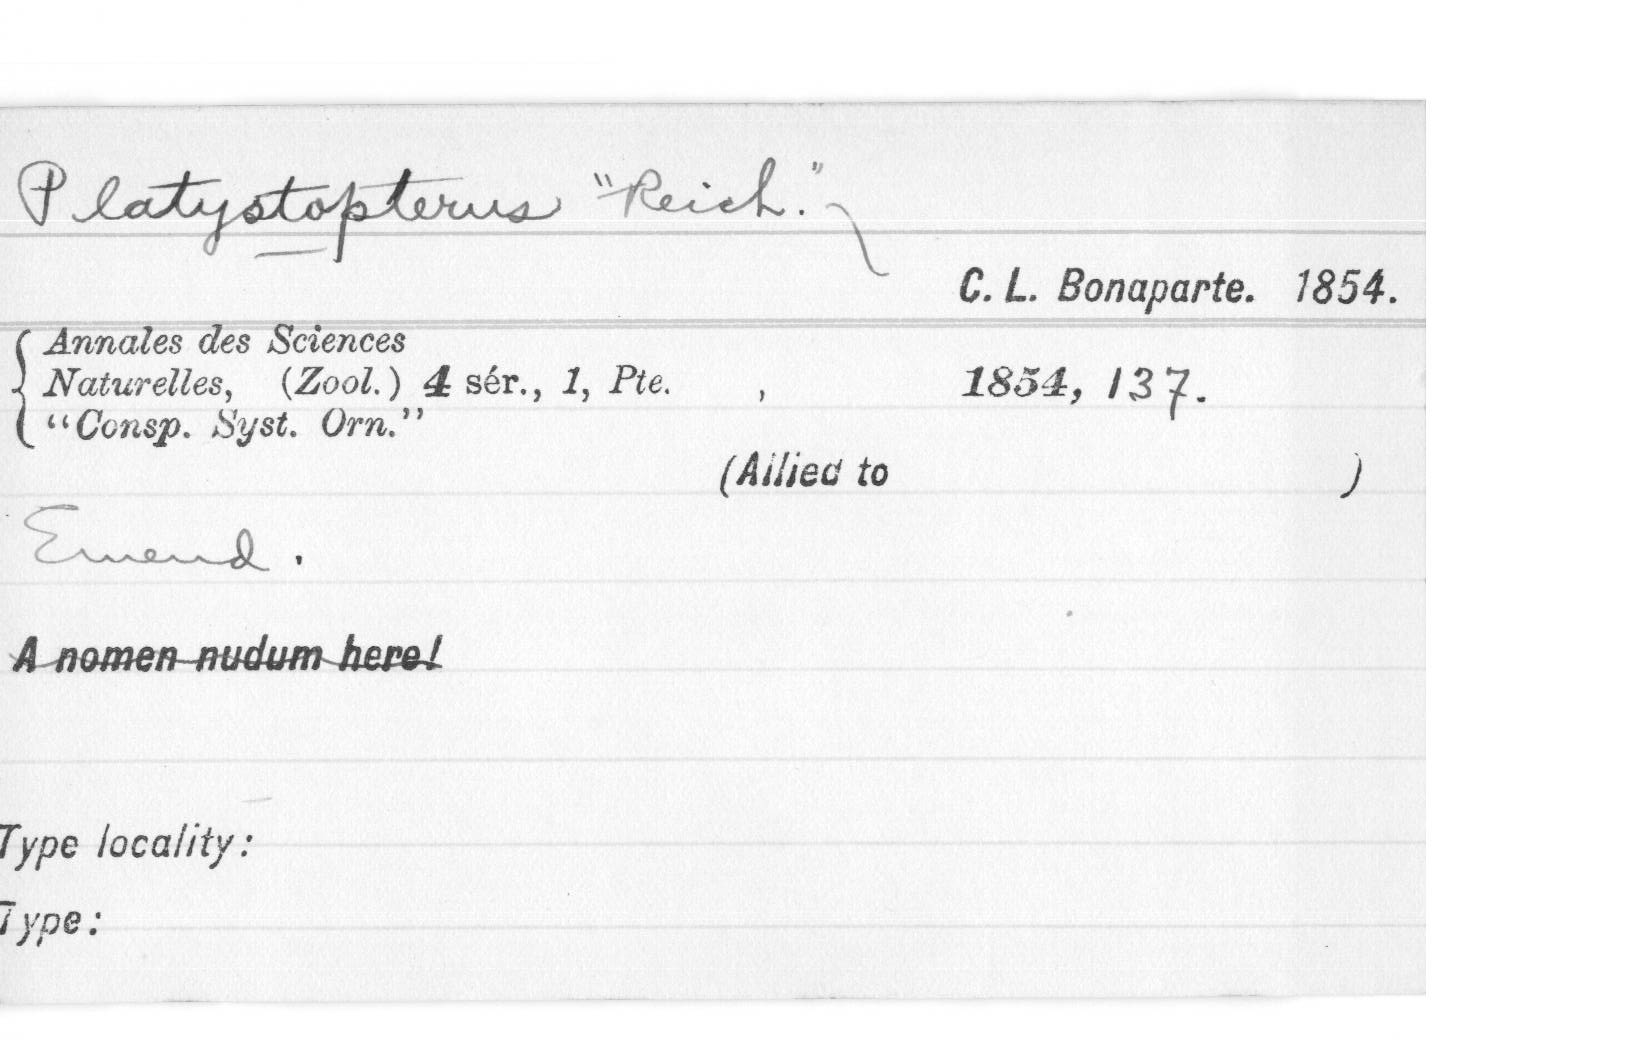 Platystopterus "Reich."
C. L. Bonaparte. 1854.
Annales des Sciences
Naturelles, (Zool.) 4 sér., 1, Pte. , 1854, 137.
"Consp. Syst. Orn."
(Allied to )
Emend.
A nomen nudum here!
Type locality:
Type: